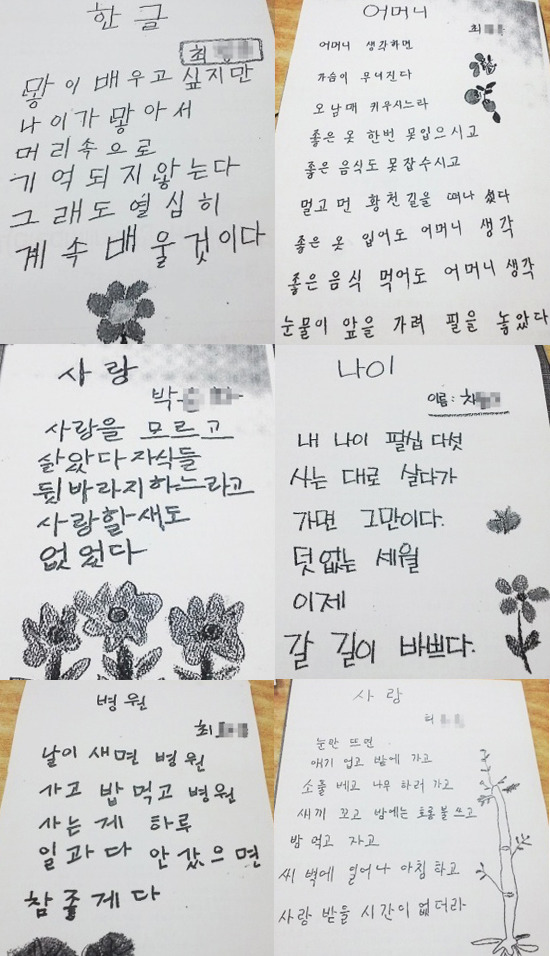 한글
최
많이 배우고 싶지만
나이가 많아서
머리속으로
기역되지 않는다
그래도 열심히
계속 배울것이다
어머니
최
어머니 생각하면
가슴이 무너진다
오남매 키우시느라
좋은 옷 한번 못입으시고
좋은 음식도 못잡수시고
멀고 먼 황천길을 떠나 셨다
좋은 옷 입어도 어머니 생각
좋은 음식 먹어도 어머니 생각
눈물이 앞을 가려 필을 놓았다
사랑
박
사랑을 모르고
살았다 자식들
뒷바라지하느라고
사랑할새도
없었다
나이
이름: 차
내 나이 팔십 다섯
사는 대로 살다가
가면 그만이다.
덧없는 세월
이제
갈 길이 바쁘다.
병원
최
날이 새면 병원
가고 밥먹고 병원
사는게 하루
일과다 안갔으면
참좋게다
사랑
눈만 뜨면
애기 업고 밭에 가고
소풀 베고 나무 하러 가고
새끼 꼬고 밤에는 호롱불 쓰고
밤 먹고 자고
씨벽에 일어나 아침 하고
사랑 받을 시간이 없더라